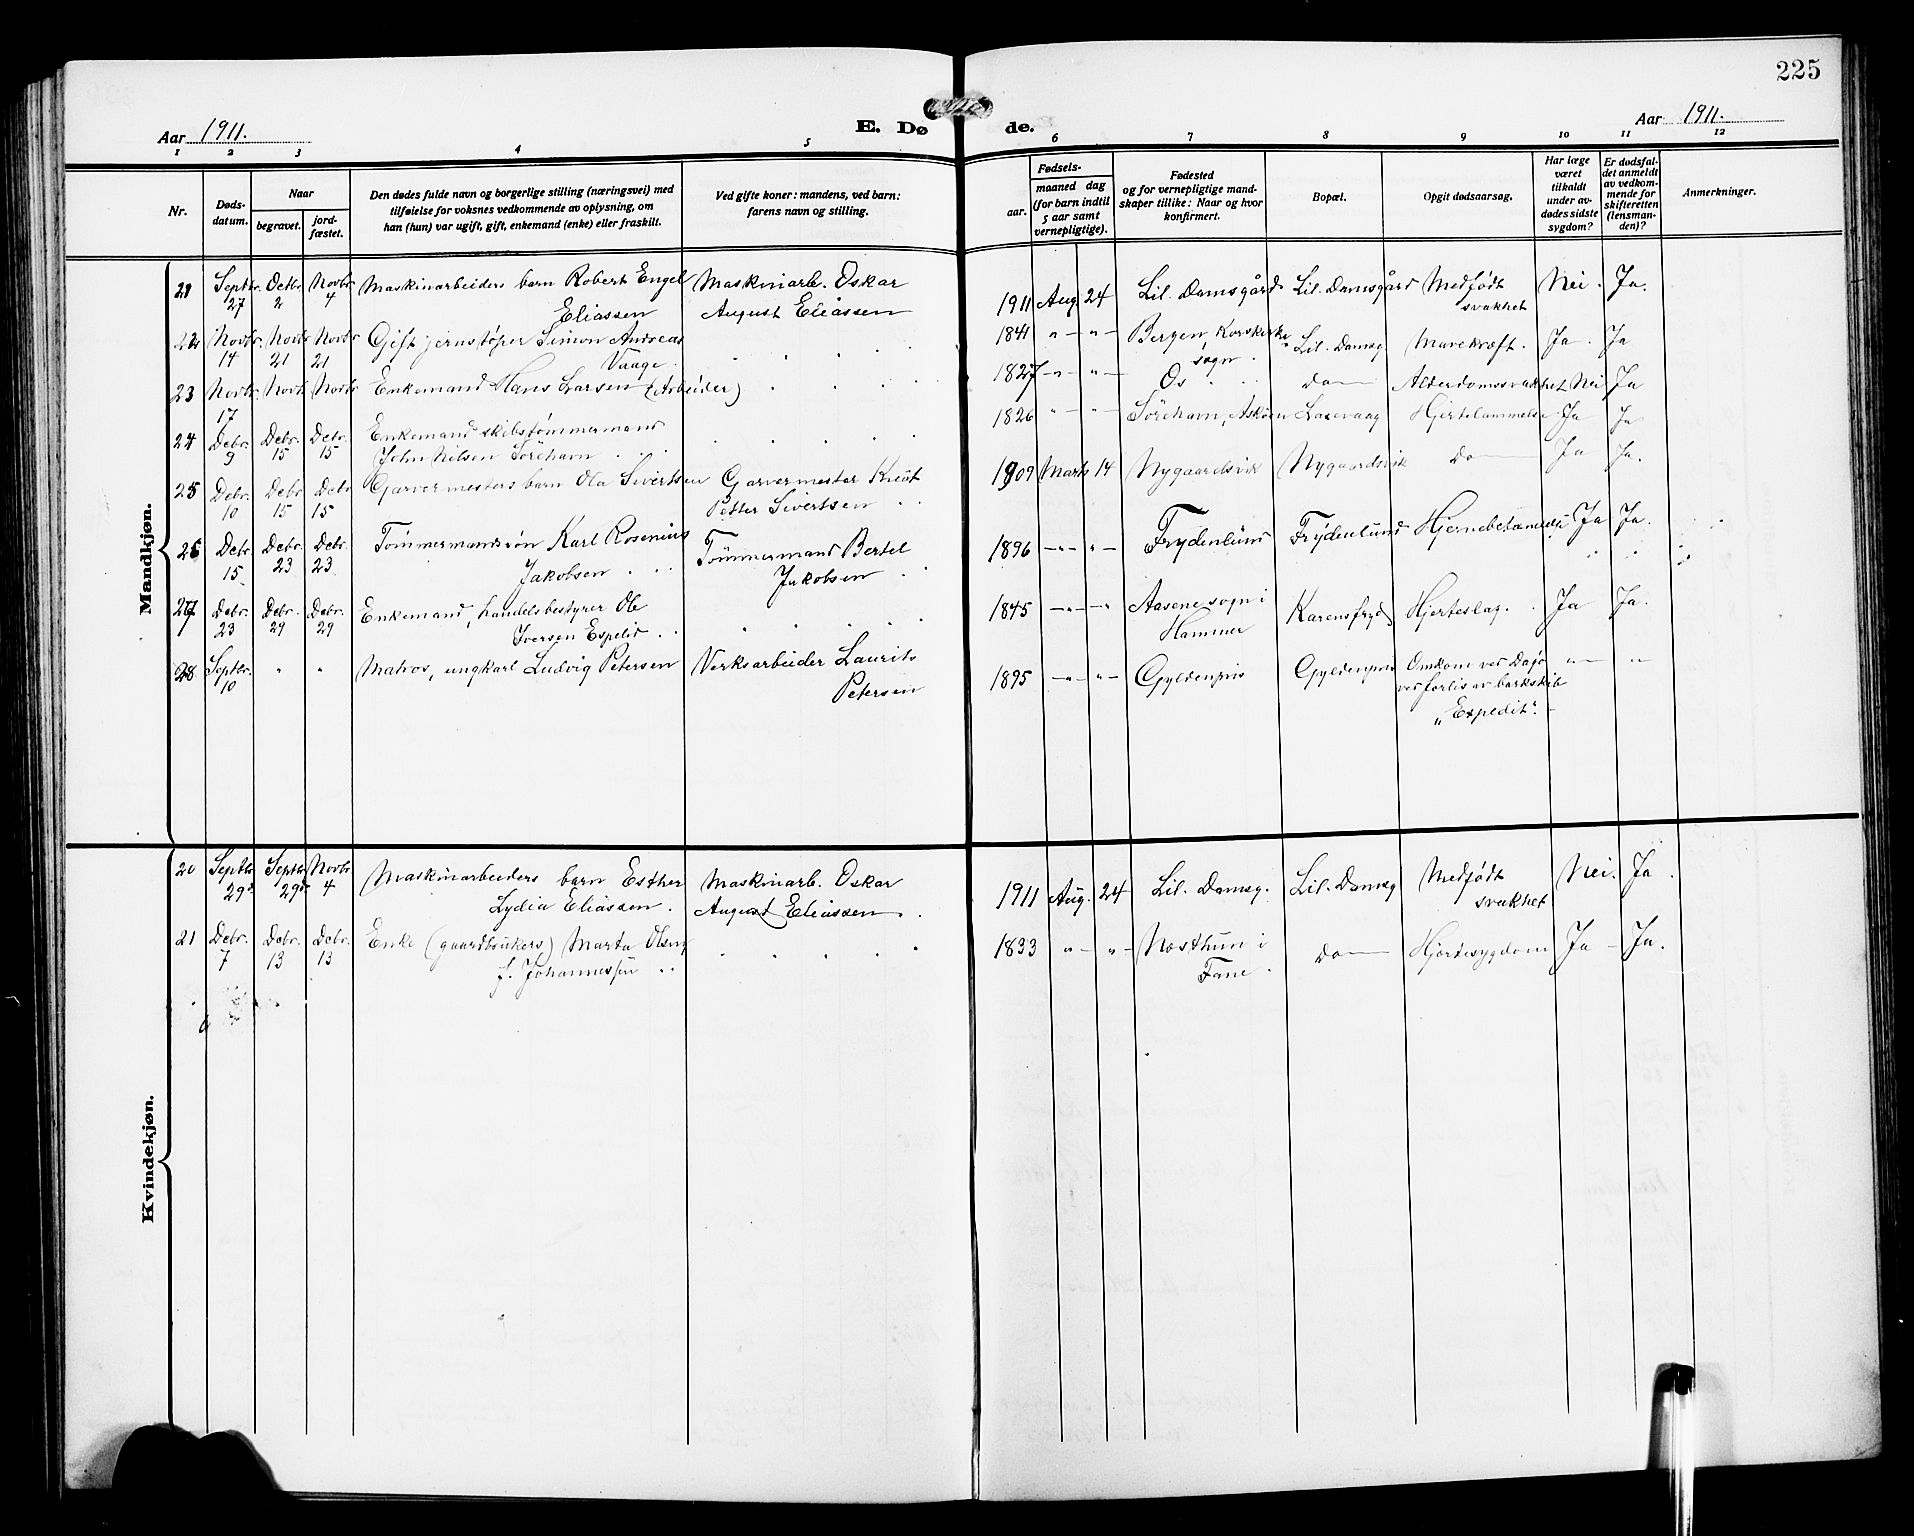 225
Aar 1911. E. Dø de. Aar 1911.
1 2 3 4 5 6 7 8 9 10 11 12
Nr.
Døds-
datum.
Naar
begravet.
jord-
fæstet.
Den dødes fulde navn og borgerlige stilling (næringsvei) med
tilføielse for voksnes vedkommende av oplysning, om
han (hun) var ugift, gift, enkemand (enke) eller fraskilt.
Ved gifte koner: mandens, ved barn:
farens navn og stilling.
Fødsels-
aar.
maaned dag
(for barn indtil
5 aar samt
vernepligtige).
Fødested
og for vernepligtige mand-
skaper tillike: Naar og hvor
konfirmert.
Bopæl.
Opgit dødsaarsag.
Har læge
været
tilkaldt
under av-
dødes sidste
sygdom?
Er dødsfal-
det anmeldt
av vedkom-
mende for
skifteretten
(lensman-
den)?
Anmerkninger.
Mandkjøn.
21 Septbr. Octbr. Novbr. Maskinarbeiders barn Robert Engel Maskinarb. Oskar 1911 Aug 24 Lil. Damsgård Lil. Damsgård Medfødt Nei. Ja.
27 2 4 Eliassen August Eliassen svakhet
22 Novbr. Novbr Novbr Gift jernstøper Simon Andreas 1841 " " Bergen, Korskirke Lil. Damsg Mavekræft. Ja. Ja
14 21 21 Vaage. sogn.
23 Novbr. Novbr Novbr. Enkemand Hans Larsen (Arbeider) 1827 " " Os do Alderdomssvakhet Nei Ja
17
24 Debr. Debr. Debr. Enkemand skibstømmermand 1826 " " Sörehavn, Askøen Laxevaag Hjertelammelse Ja Ja
9 15 15 John Nilsen Sörehavn
25 Debr. Debr. Debr Garvermesters barn Ola Sivertsen Garvermester Knut 1909 Marts 14 Nygaardsvik Nygaardsvik Do Ja Ja.
10 15 15 Petter Sivertsen
26 Debr. Debr. Debr. Tömmermandssön Karl Rosenius Tömmermand Bertel 1896 " " Frydenlund Frydenlund Hjernebetændelse Ja Ja.
15 23 23 Jakobsen Jakobsen
27 Debr. Debr. Debr. Enkemand, handelsbestyrer Ole 1845 " " Aasene sogn i Karensfryd Hjerteslag. Ja Ja.
23 29 29 Iversen Espelid Hammer
28 Septbr. " " Matros, ungkarl Ludvig Petersen Verksarbeider Laurits 1895 " " Gyldenpris Gyldenpris Omkom ved Dajö " "
10 Petersen ved forlis av barkskib
"Expedit".
Kvindekjøn.
20 Septbr. Septbr. Novbr. Maskinarbeiders barn Esther Maskinarb. Oskar 1911 Aug. 24 Lil. Damsg. Lil. Damsg Medfödt Nei. Ja.
29 29 4 Lydia Eliassen. August Eliassen. svakhet
21 Debr. Debr. Debr. Enke (gaardbrukers) Marta Olsen 1833 " " Nesthun i Do Hjertesygdom Ja Ja.
7 13 13 f. Johannessen Fane.